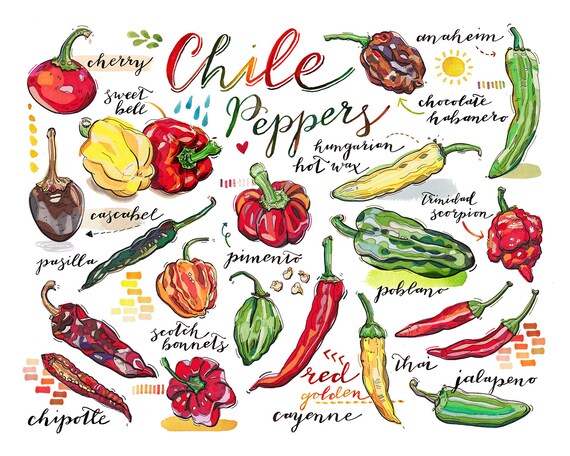 Chile
Peppers
cherry
sweet
bell
anaheim
chocolate
habanero
hungarian
hot wax
cascabel
Trinidad
scorpion
pasilla
pimento
poblano
scotch
bonnets
red
golden
cayenne
thai
jalapeno
chipotle